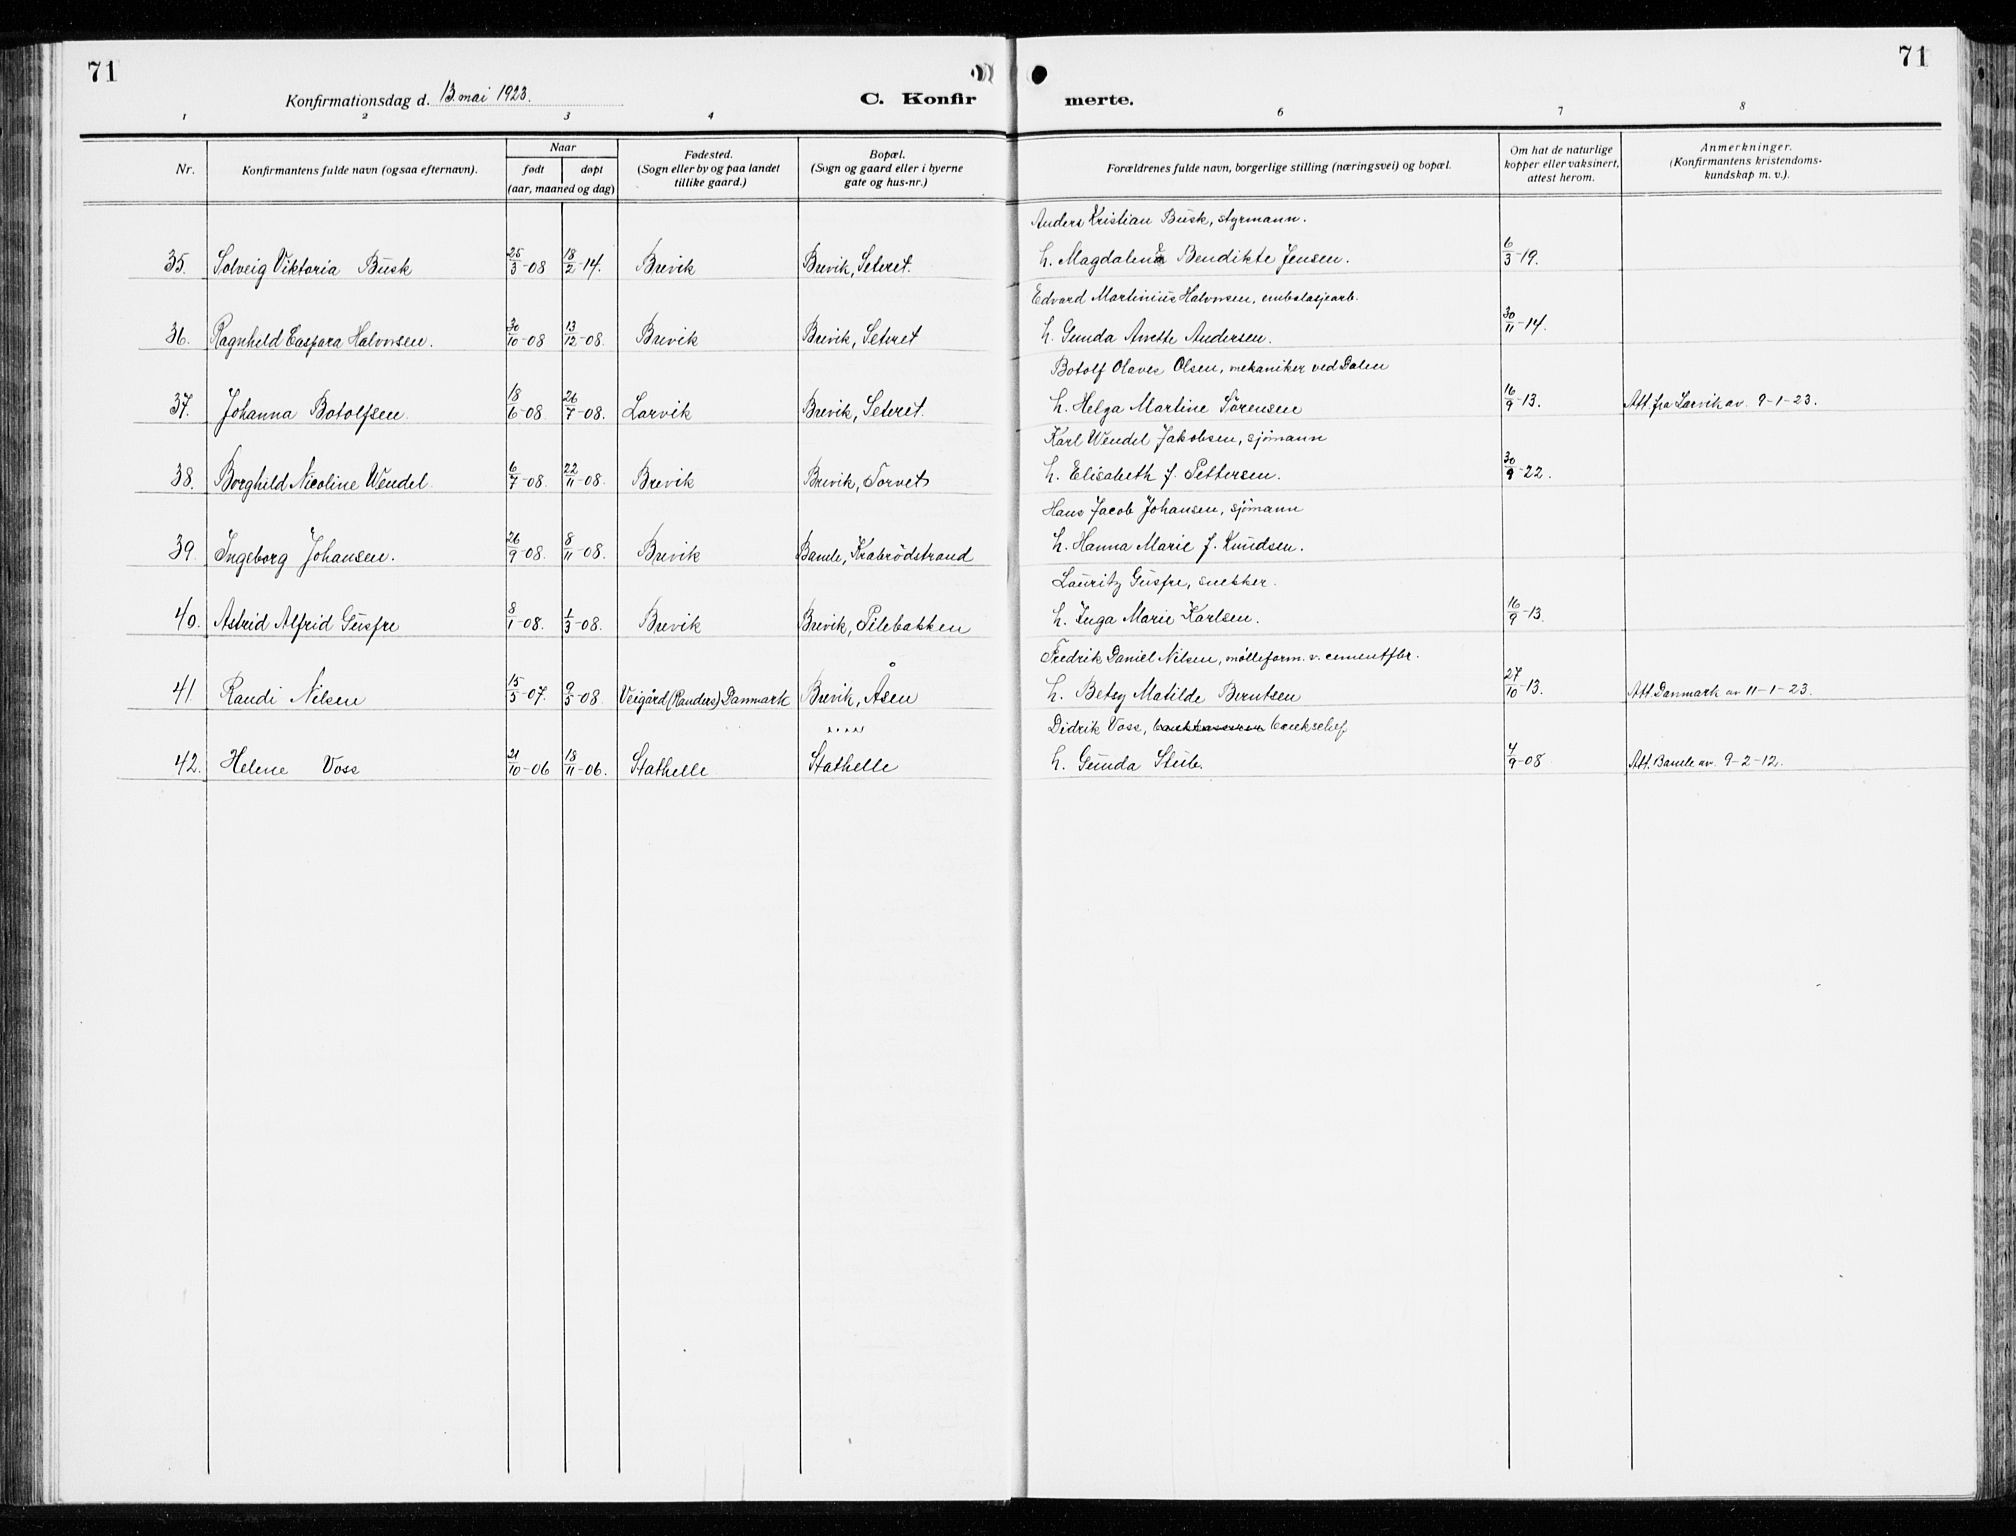 71
71
Konfirmationsdag d. 13. mai 1923.
C. Konfir merte.
1 2 3 4 6 7 8
Nr.
Konfirmantens fulde navn (ogsaa efternavn).
Naar
født
døpt
(aar, maaned og dag)
Fødested.
(Sogn eller by og paa landet
tillike gaard.)
Bopæl.
(Sogn og gaard eller i byerne
gate og hus-nr.)
Forældrenes fulde navn, borgerlige stilling (næringsvei) og bopæl.
Om hat de naturlige
kopper eller vaksinert,
attest herom.
Anmerkninger.
(Konfirmantens kristendoms-
kundskap m. v.).
Anders Kristian Busk, styrmann.
35. Solveig Viktoria Busk 25/3-08 18/2-14. Brevik Brevik, Seteret. h. Magdalena Bendikte Jensen. 6/3-19.
Edvard Martinius Halvorsen, embalasjearb.
36. Ragnhild Caspara Halvorsen. 30/10-08 13/12-08. Brevik Brevik, Seteret h. Gunda Anette Andersen. 30/11-14.
Botolf Olaves Olsen, mekaniker ved Dalen
37. Johanna Botolfsen. 18/6-08. 26/7-08. Larvik Brevik, Seteret. h. Helga Martine Sørensen 16/9-13. Att. fra Larvik av. 9-1-23.
Karl Wendel Jakobsen, sjømann
38. Borghild Nicoline Wendel. 6/7-08. 22/11-08. Brevik Brevik, Torvet h. Elisabeth f. Pettersen. 30/9-22.
Hans Jacob Johansen, sjømann
39. Ingeborg Johansen. 26/9-08. 8/11-08. Brevik Bamle, Krabrødstrand h. Hanna Marie f. Knudsen.
Lauritz Gusfre, snekker.
40. Astrid Alfrid Gusfre 8/1-08. 1/3-08. Brevik Brevik, Pilebakken h. Inga Marie Karlsen. 16/9-13.
Fredrik Daniel Nilsen, mølleform. v. cementfbr.
41. Randi Nilsen 15/5-07. 9/5-08. Veigård (Randers) Danmark Brevik, Åsen h. Betsy Matilde Berntsen 27/10-13. Att. Danmark av 11-1-23.
Didrik Voss, bankchef
42. Helene Voss 21/10-06 18/11-06. Stathelle Stathelle h. Gunda Stub. 4/9-08 Att. Bamle av. 9-2-12.